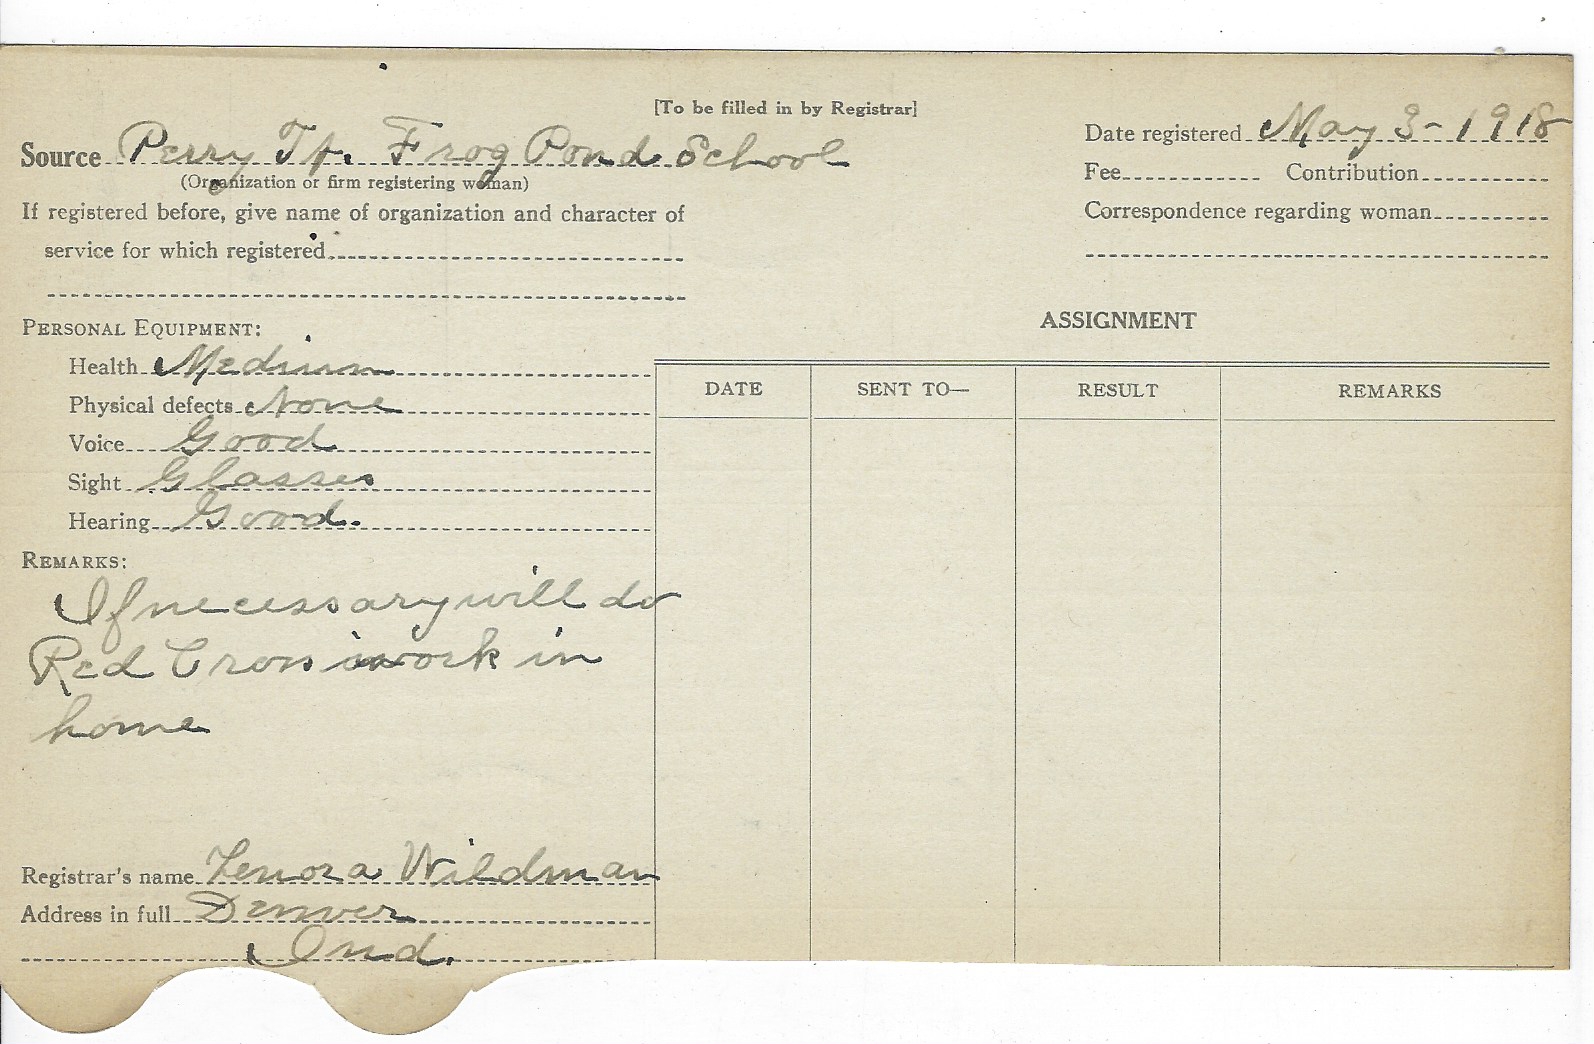 [To be filled in by Registrar]
Source Perry Tp. Frog Pond School
(Organization or firm registering woman)
Date registered May 3-1918
Fee Contribution
If registered before, give name of organization and character of
service for which registered
Correspondence regarding woman
PERSONAL EQUIPMENT:
ASSIGNMENT
Health Medium
Physical defects None
Voice Good
Sight Glasses
Hearing Good.
DATE SENT TO— RESULT REMARKS
REMARKS:
If necessary will do
Red Cross work in
home
Registrar's name Lenora Wildman
Address in full Denver
Ind.